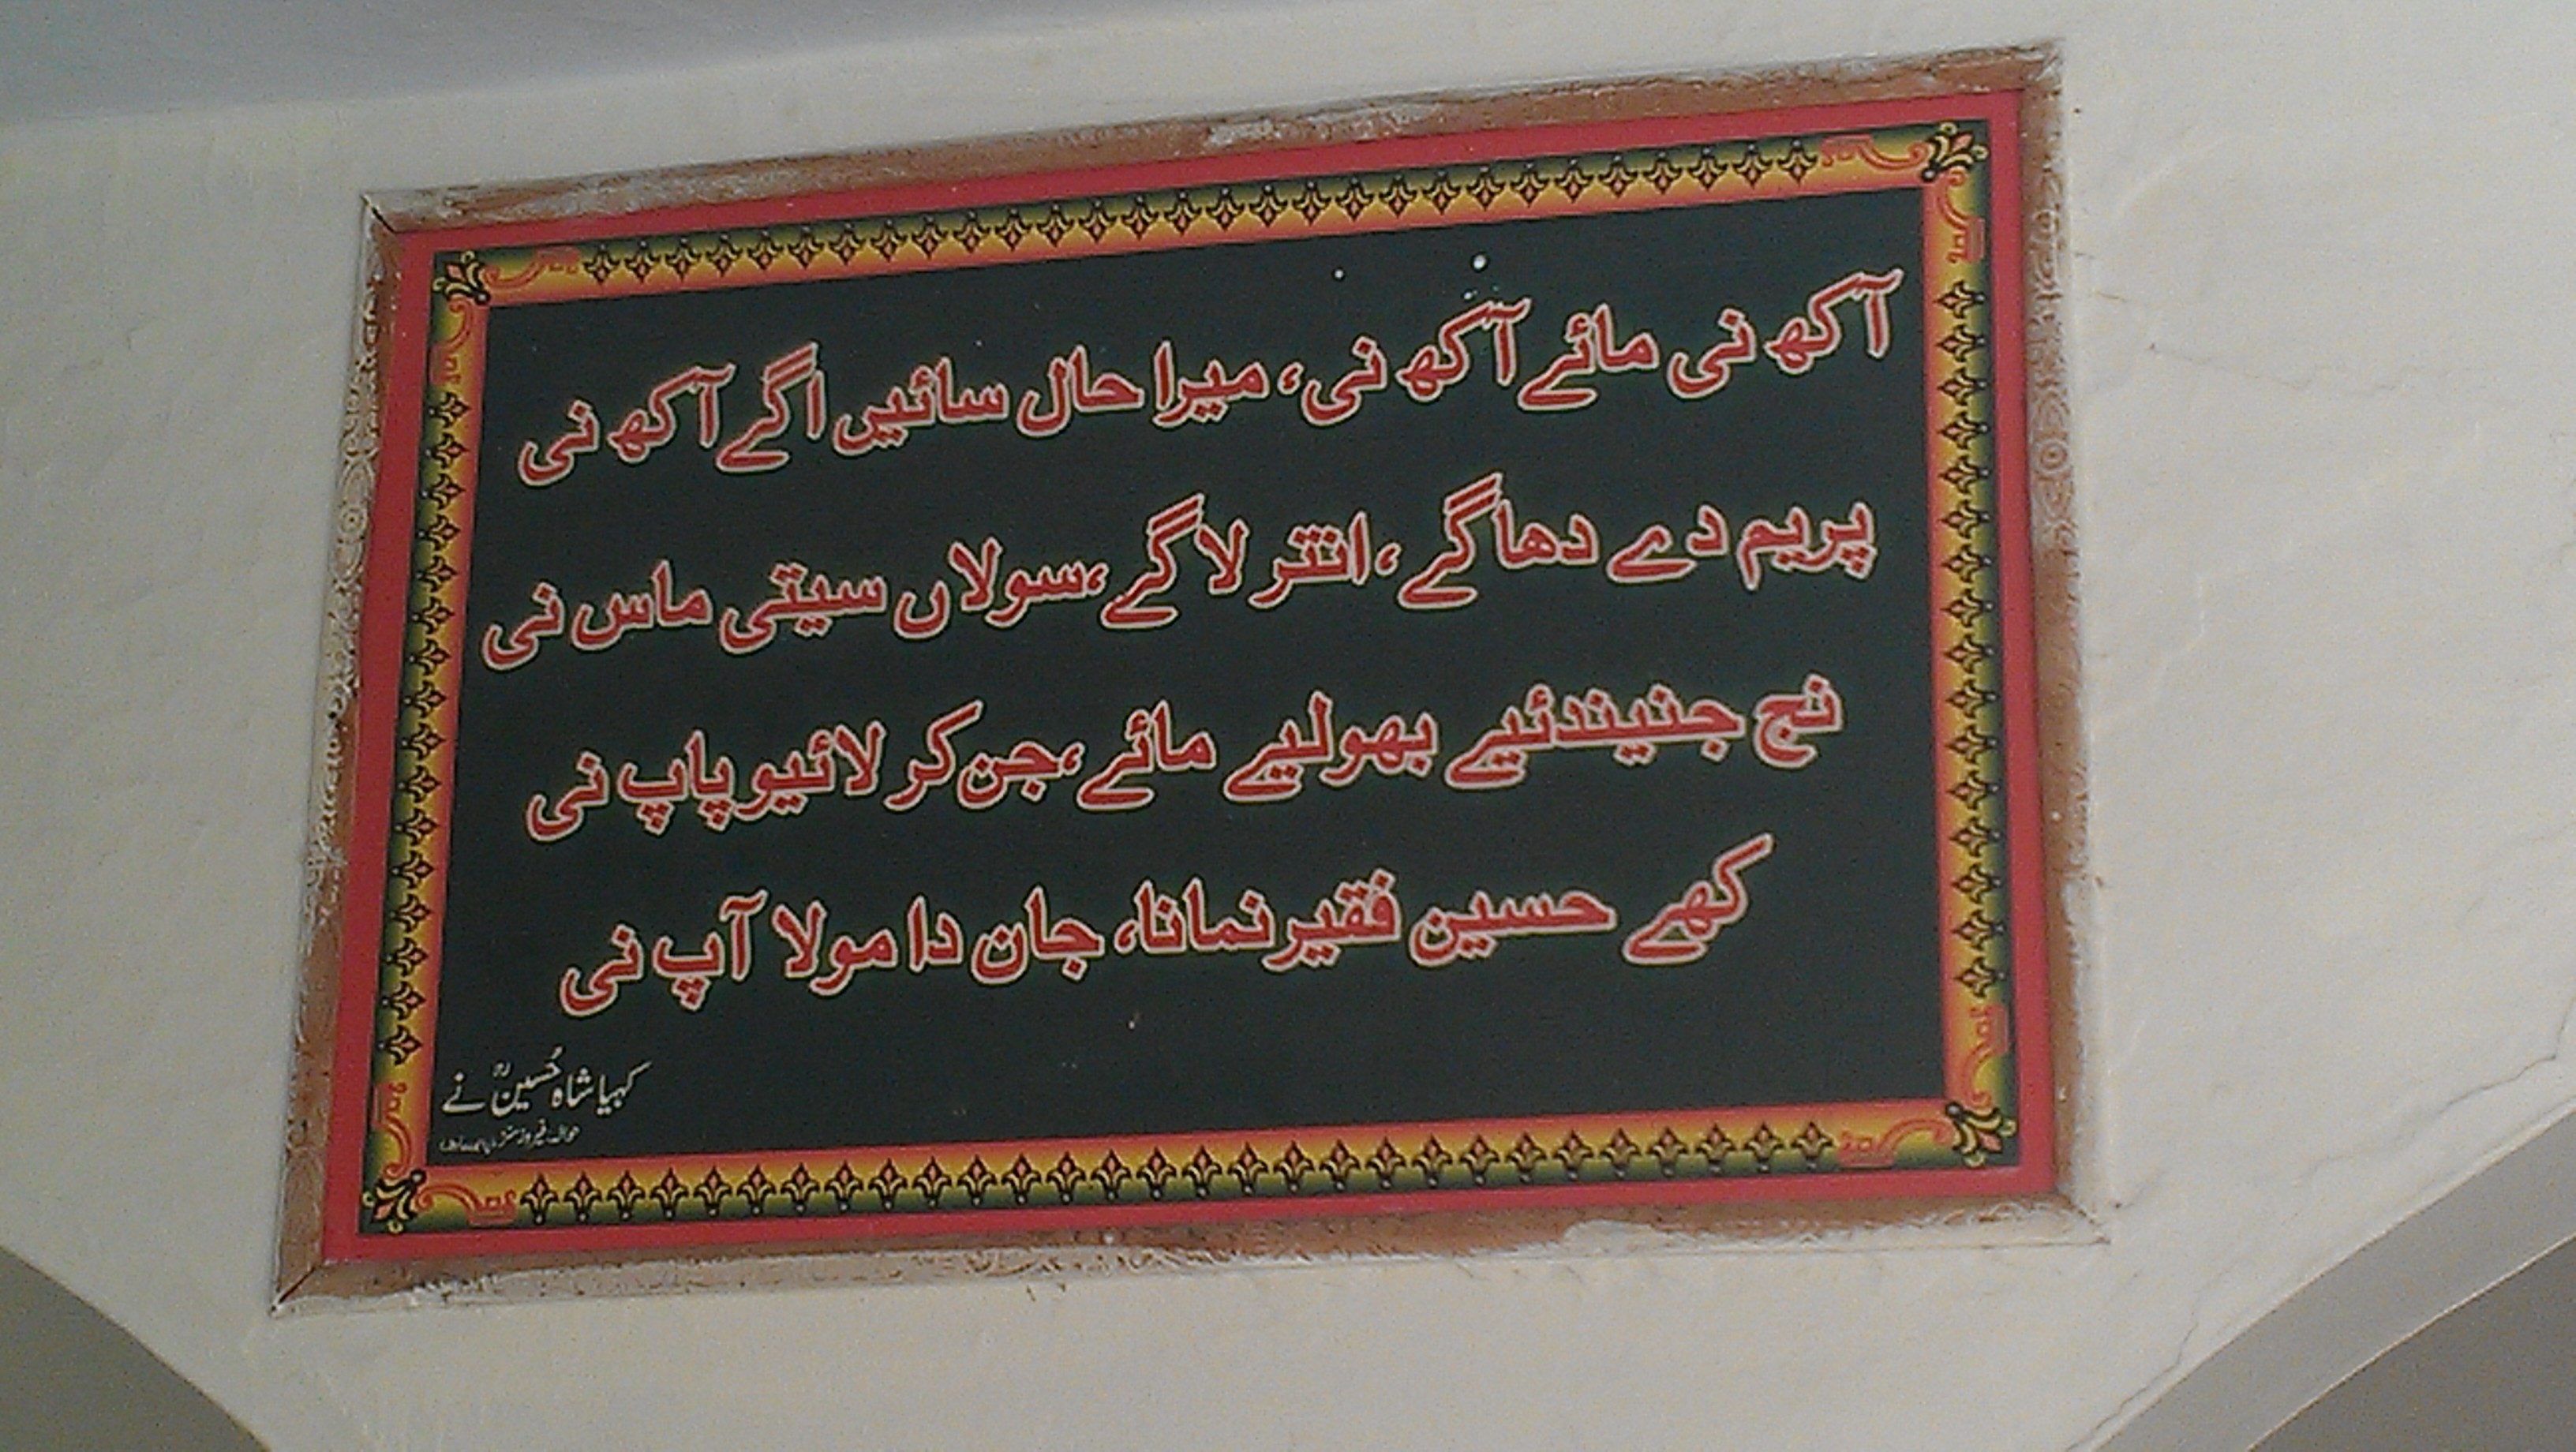 آکھ نی مائے آکھ نی، میرا حال سائیں اگے آکھ نی
پریم دے دھاگے ،انتر لاگے ،سولاں سیتی ماس نی
نج جنیندئیے بھولیے مائے ،جن کر لائیو پاپ نی
کھے حسین فقیر نمانا، جان دا مولا آپ نی
کہیا شاہ حُسینؒ نے
حوالہ: فیروز سنز